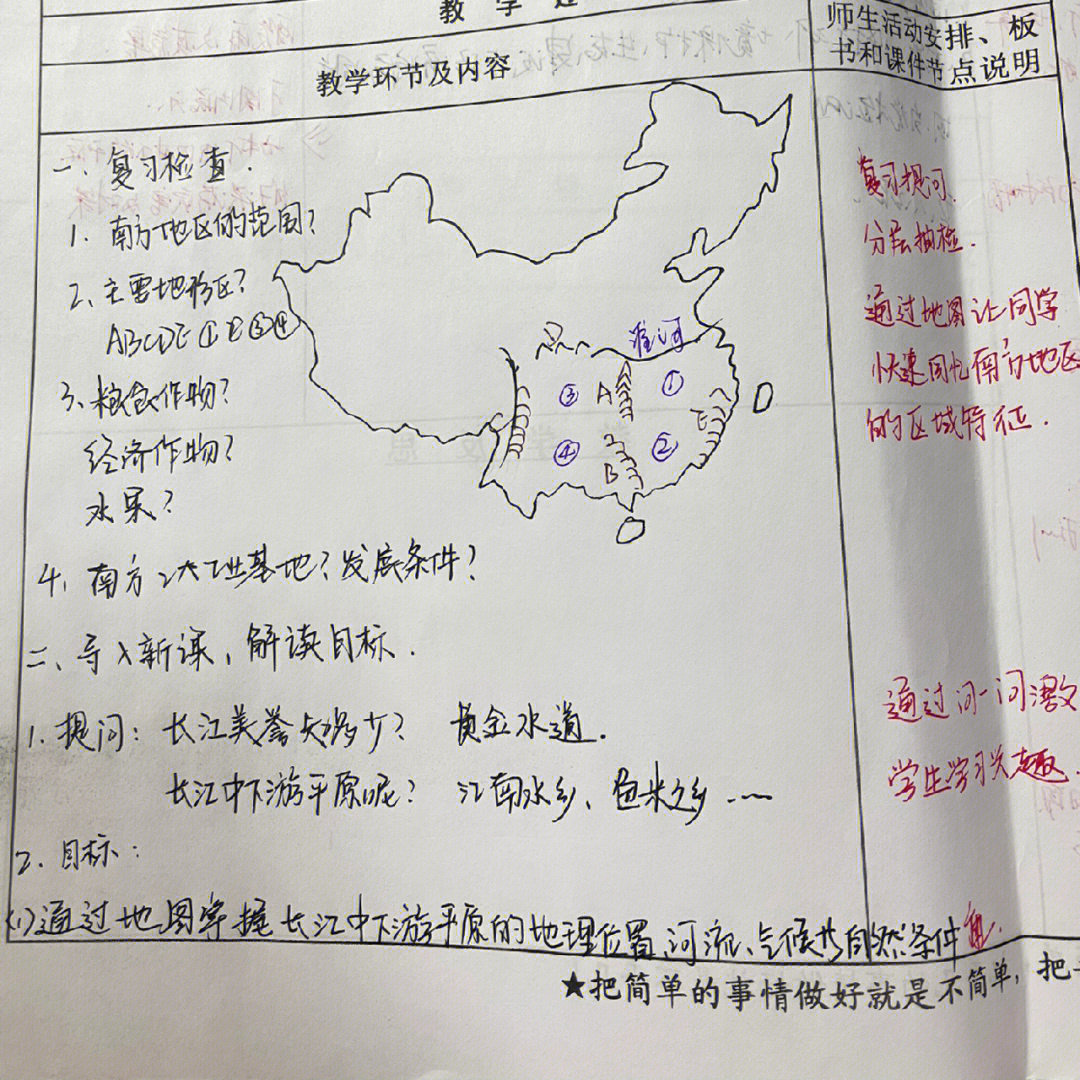 教学过
教学环节及内容
师生活动安排、板
书和课件节点说明
一、复习检查.
1. 南方地区的范围?
2、主要地形区?
ABCDE①②③④
3、粮食作物?
经济作物?
水果?
4、南方2大工业基地?发展条件?
淮河
③ A ①
C E
④ ②
B
二、导入新课,解读目标.
1. 提问: 长江美誉知多少? 黄金水道.
长江中下游平原呢? 江南水乡、鱼米之乡……
2. 目标:
(1)通过地图掌握长江中下游平原的地理位置、河流、气候等自然条件
复习提问.
分层抽检.
通过地图让同学
快速回忆南方地区
的区域特征.
通过问一问激
学生学习兴趣.
★把简单的事情做好就是不简单,把